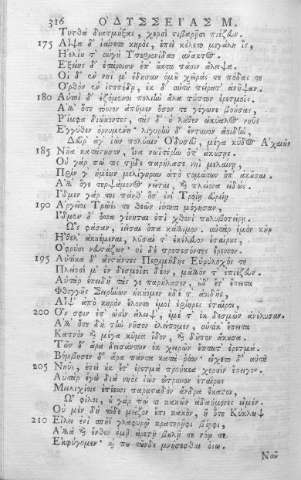 316 ΟΔΥΣΣΕΙΑΣ Μ.
Τυτθὰ διατμήξας, χερσὶ στιβαρῇσι πίεζον.
175 Αἶψα δ' ἰαίνετο κηρὸς, ἐπεὶ κέλετο μεγάλη ἲς,
Ἠελίου τ' αὐγὴ Ὑπεριονίδαο ἄνακτος.
Ἑξείης δ' ἑτάροισιν ἐπ' οὔατα πᾶσιν ἄλειψα.
Οἱ δ' ἐν νηΐ μ' ἔδησαν ὁμοῦ χεῖράς τε πόδας τε
Ὀρθὸν ἐν ἱστοπέδῃ, ἐκ δ' αὐτοῦ πείρατ' ἀνῆπτον.
180 Αὐτοὶ δ' ἑζόμενοι πολιὴν ἅλα τύπτον ἐρετμοῖς.
Ἀλλ' ὅτε τόσσον ἀπῆμεν ὅσον τε γέγωνε βοήσας,
Ῥίμφα διώκοντες, τὰς δ' οὐ λάθεν ὠκύαλος νηῦς
Ἐγγύθεν ὀρνυμένη· λιγυρὴν δ' ἔντυνον ἀοιδήν,
Δεῦρ' ἄγ' ἰὼν πολύαιν' Ὀδυσεῦ, μέγα κῦδος Ἀχαιῶν
185 Νῆα κατάστησον, ἵνα νωϊτέρην ὄπ' ἀκούσῃς.
Οὐ γάρ πώ τις τῇδε παρήλασε νηῒ μελαίνῃ,
Πρίν γ' ἡμέων μελίγηρυν ἀπὸ στομάτων ὄπ' ἀκοῦσαι.
Ἀλλ' ὅγε τερψάμενος νεῖται, καὶ πλείονα εἰδώς.
Ἴδμεν γάρ τοι πάνθ' ὅσ' ἐνὶ Τροίῃ εὐρείῃ
190 Ἀργεῖοι Τρῶές τε θεῶν ἰότητι μόγησαν,
Ἴδμεν δ' ὅσσα γένηται ἐπὶ χθονὶ πουλυβοτείρῃ.
Ὣς φάσαν, ἱεῖσαι ὄπα κάλλιμον. αὐτὰρ ἐμὸν κῆρ
Ἤθελ' ἀκουέμεναι, λῦσαί τ' ἐκέλευον ἑταίρους,
Ὀφρύσι νευστάζων· οἱ δὲ προπεσόντες ἔρεσσον.
195 Αὐτίκα δ' ἀνστάντες Περιμήδης Εὐρύλοχός τε
Πλείοσί μ' ἐν δεσμοῖσι δέον, μᾶλλόν τ' ἐπίεζον.
Αὐτὰρ ἐπειδὴ τάς γε παρήλασαν, οὐδ' ἔτ' ἔπειτα
Φθογγῆς Σειρήνων ἠκούομεν οὐδέ τ' ἀοιδῆς,
Αἶψ' ἀπὸ κηρὸν ἕλοντο ἐμοὶ ἐρίηρες ἑταῖροι,
200 Ὅν σφιν ἐπ' ὠσὶν ἄλειψ', ἐμέ τ' ἐκ δεσμῶν ἀνέλυσαν.
Ἀλλ' ὅτε δὴ τὴν νῆσον ἐλείπομεν, αὐτίκ' ἔπειτα
Καπνὸν καὶ μέγα κῦμα ἴδον, καὶ δοῦπον ἄκουσα.
Τῶν δ' ἄρα δεισάντων ἐκ χειρῶν ἔπτατ' ἐρετμά.
Βόμβησεν δ' ἄρα πάντα κατὰ ῥόον· ἔσχετο δ' αὐτοῦ
205 Νηῦς, ἐπεὶ οὐκ ἔτ' ἐρετμὰ προήκεα χερσὶν ἔπειγον.
Αὐτὰρ ἐγὼ διὰ νηὸς ἰὼν ὤτρυνον ἑταίρους
Μειλιχίοις ἐπέεσσι παρασταδὸν ἄνδρα ἕκαστον,
Ὦ φίλοι, οὐ γάρ πώ τι κακῶν ἀδαήμονές εἰμεν.
Οὐ μὲν δὴ τόδε μεῖζον ἔπι κακὸν, ἢ ὅτε Κύκλωψ
210 Εἴλει ἐνὶ σπῆϊ γλαφυρῷ κρατερῆφι βίηφι,
Ἀλλὰ καὶ ἔνθεν ἐμῇ ἀρετῇ βουλῇ τε νόῳ τε
Ἐκφύγομεν· καί που τῶνδε μνήσεσθαι ὀΐω.
Νῦν